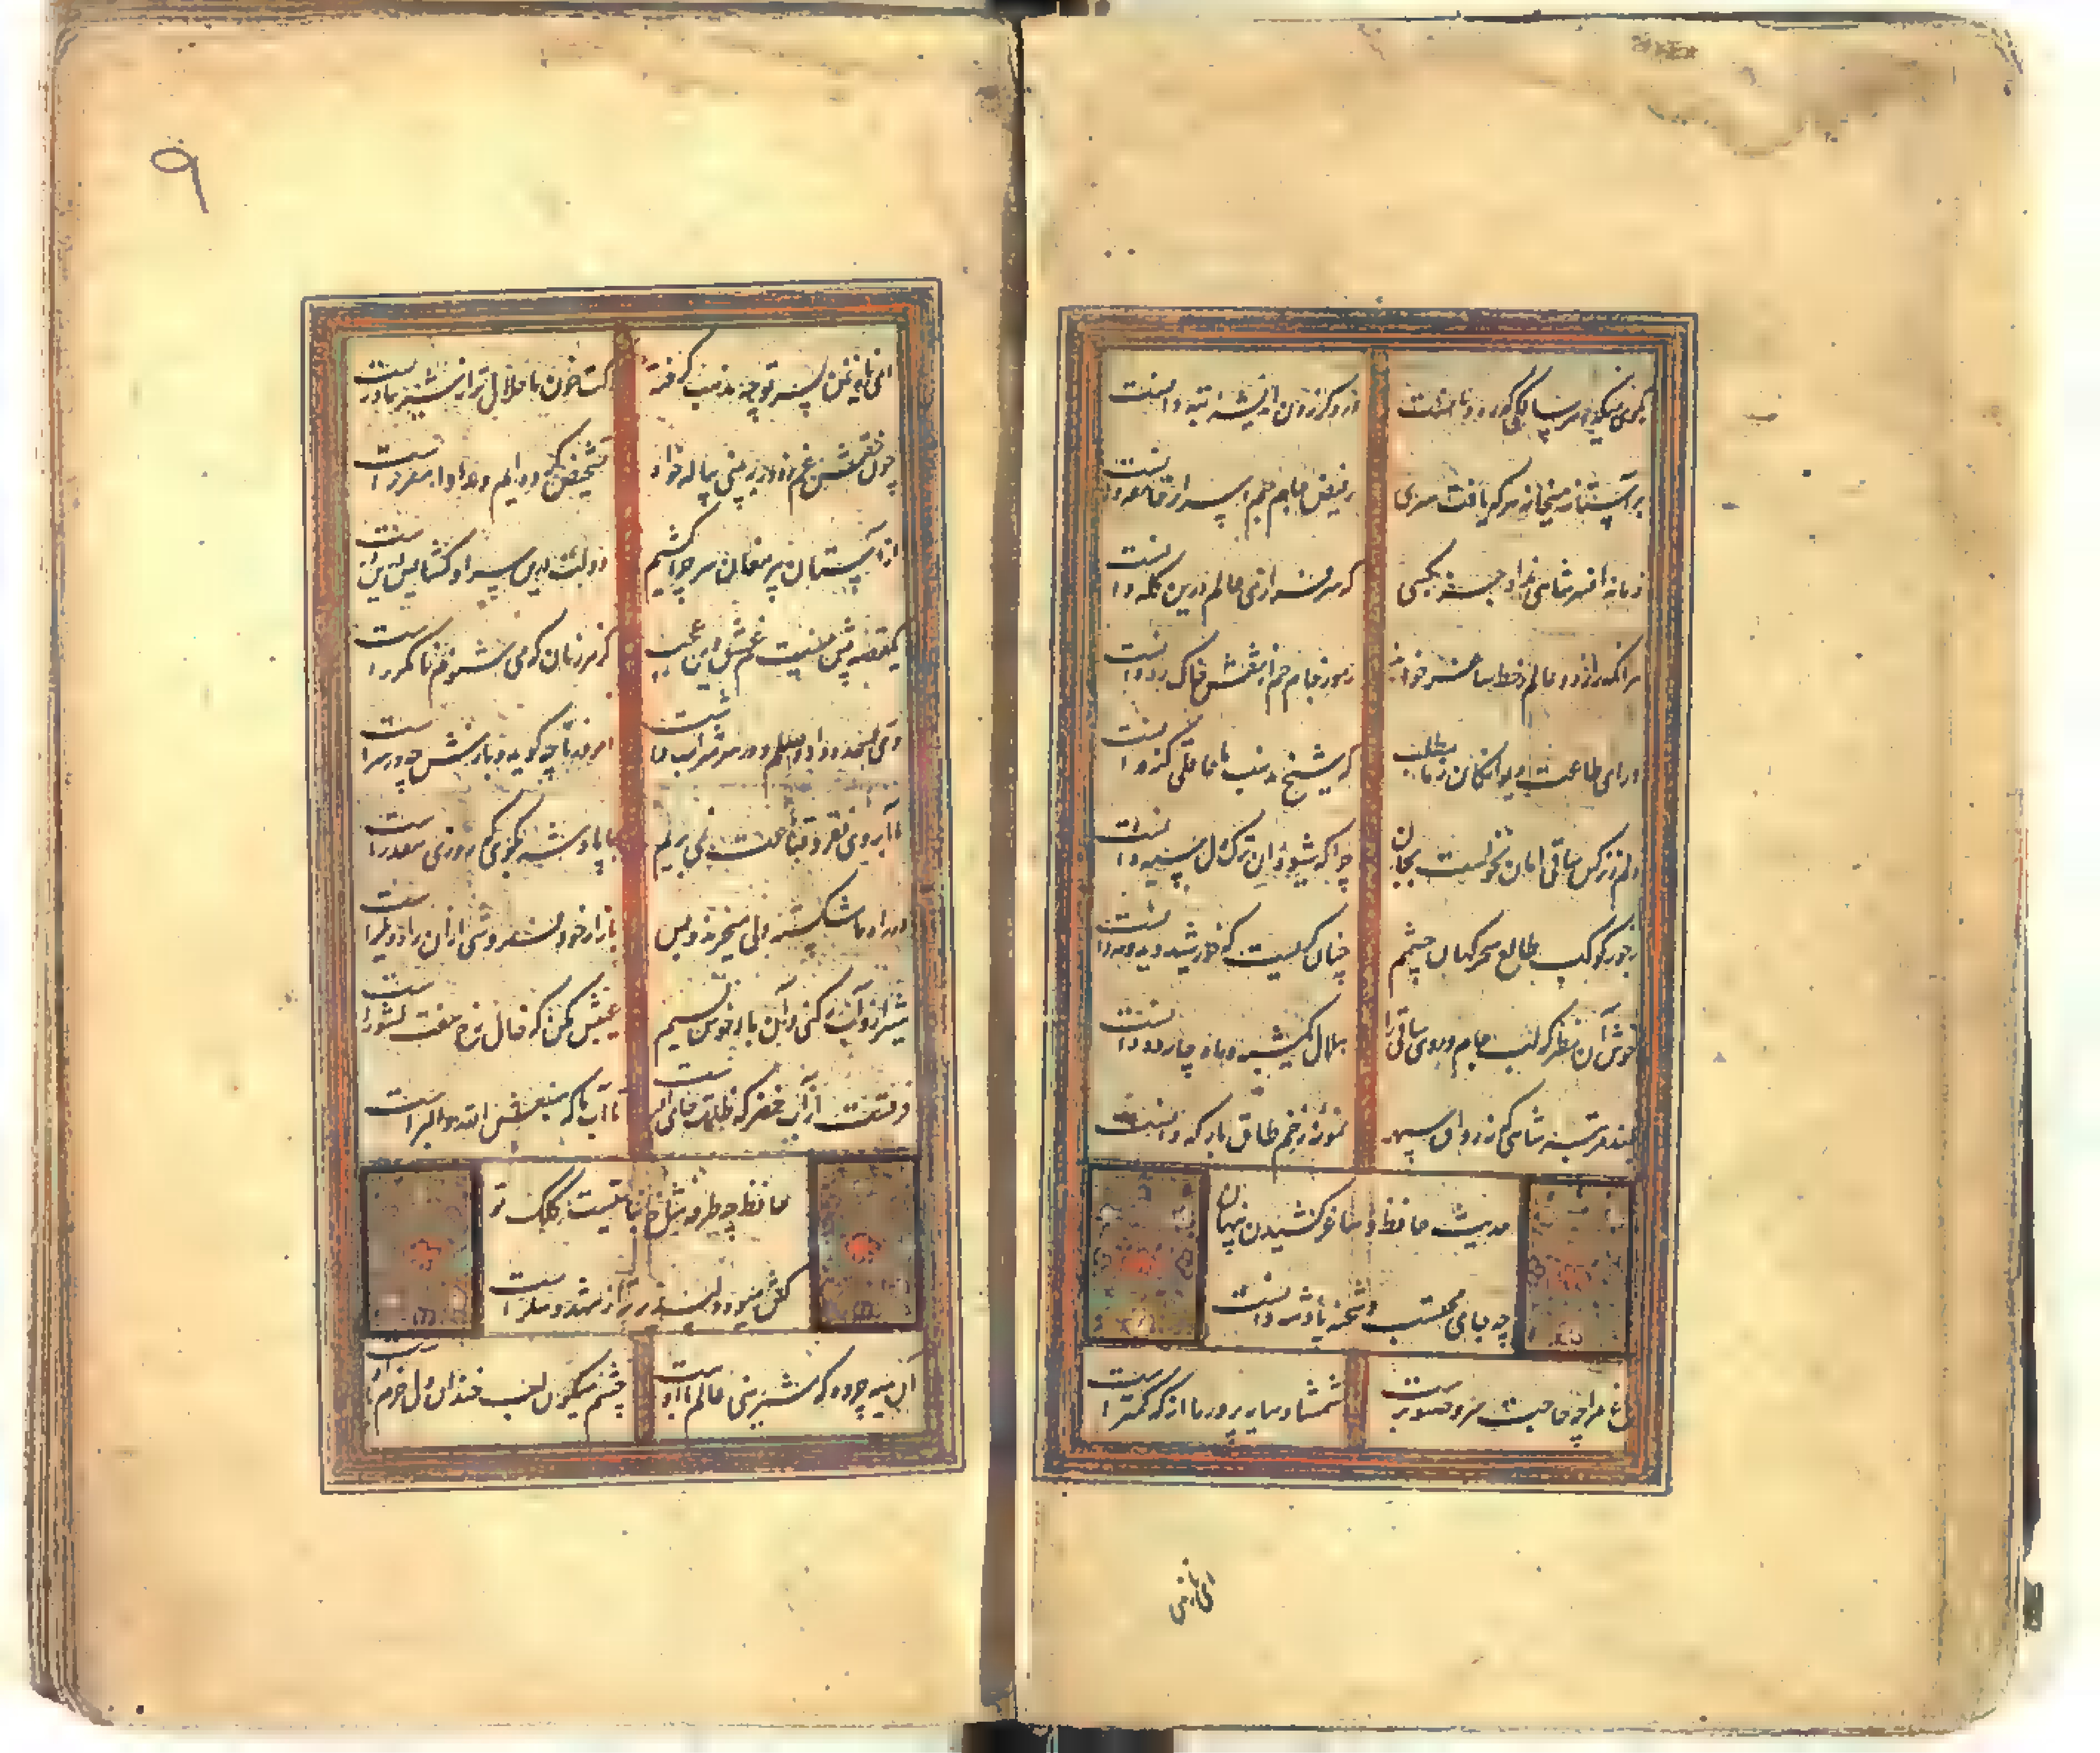 بکوی میکده هر سالکی که ره دانست
در دگر زدن اندیشه تبه دانست
بر آستانه میخانه هر که یافت سری
ز فیض جام جم اسرار خانقه دانست
زمانه افسر شاهی نداد جز بکسی
که سرفرازی عالم درین کله دانست
هر آنکه راز دو عالم ز خط ساغر خواند
رموز جام جم از نقش خاک ره دانست
ورای طاعت دیوانگان ز ما مطلب
که شیخ مذهب ما عاقلی گنه دانست
دلم ز نرگس ساقی امان نخواست بجان
چرا که شیوه آن ترک دل سیه دانست
ز جور کوکب طالع سحرگهان چشمم
چنان گریست که خورشید دید و مه دانست
خوش آن نظر که لب جام و روی ساقی را
هلال یکشبه و ماه چارده دانست
بلند مرتبه شاهی که نه رواق سپهر
نمونه ز خم طاق بارگه دانست
حدیث حافظ و ساغر کشیدن پنهان
چه جای محتسب و شحنه پادشه دانست
باغ مرا چه حاجت سرو و صنوبرست
شمشاد سایه پرور ما از که کمترست
ای نازنین
۹
ای نازنین پسر تو چه مذهب گرفته
کت خون ما حلالتر از شیر مادرست
چون نقش غم ز دور ببینی پیاله خواه
تشخیص کرده ایم و مداوا مقررست
از آستان پیر مغان سر چرا کشیم
دولت درین سرا و گشایش درین درست
یک قصه بیش نیست غم عشق و این عجب
کز هر زبان که می شنوم نامکررست
دی وعده داد وصلم و در سر شراب داشت
امروز تا چه گوید و بازش چه در سرست
ما آبروی فقر و قناعت نمی بریم
با پادشه بگوی که روزی مقدرست
در راه ما شکسته دلی میخرند و بس
بازار خود فروشی از آن راه دیگرست
شیراز و آب رکنی و آن باد خوش نسیم
عیبش مکن که خال رخ هفت کشورست
فرقست از آب خضر که ظلمات جای اوست
تا آب ما که منبعش الله اکبرست
حافظ چه طرفه شاخ نباتیست کلک تو
کش میوه دلپذیرتر از شهد و شکرست
آن سیه چرده که شیرینی عالم با اوست
چشم میگون لب خندان دل خرم با اوست